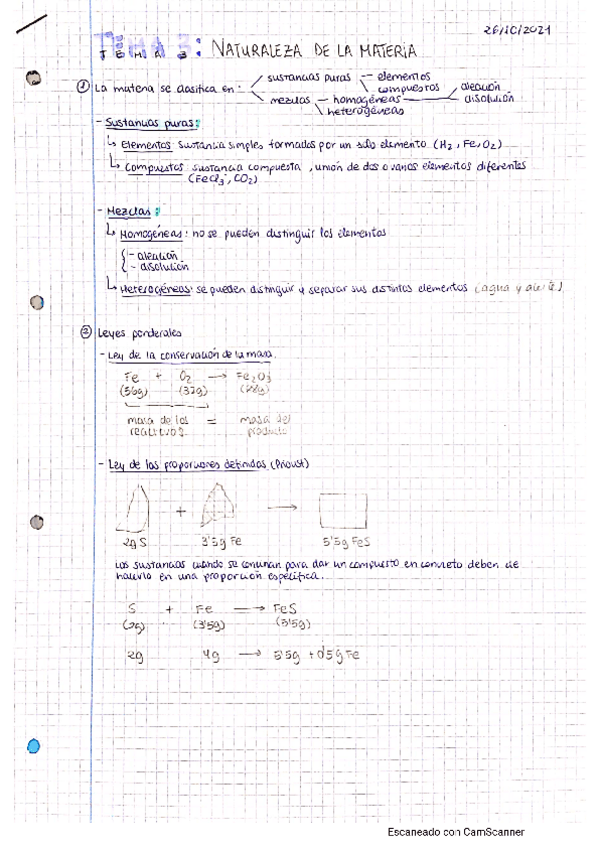 26/10/2021
TEMA 3: NATURALEZA DE LA MATERIA
① La materia se clasifica en: sustancias puras elementos compuestos
mezclas homogéneas aleación disolución
heterogéneas
- Sustancias puras:
↳ Elementos: sustancia simples formadas por un solo elemento (H2, Fe, O2)
↳ Compuestos: sustancia compuesta, unión de dos o varios elementos diferentes
(FeCl3, CO2)
- Mezclas:
↳ Homogéneas: no se pueden distinguir los elementos
- aleación
- disolución
↳ Heterogéneas: se pueden distinguir y separar sus distintos elementos (agua y aceite)
② Leyes ponderales
- Ley de la conservación de la masa.
Fe + O2 → Fe2O3
(56g) (32g) (88g)
masa de los = masa del
reactivos producto
- Ley de las proporciones definidas (Proust)
+ →
2g S 3'5g Fe 5'5g FeS
Las sustancias cuando se combinan para dar un compuesto en concreto deben de
hacerlo en una proporción específica.
S + Fe → FeS
(2g) (3'5g) (5'5g)
2g 4g → 5'5g + 0'5g Fe
Escaneado con CamScanner